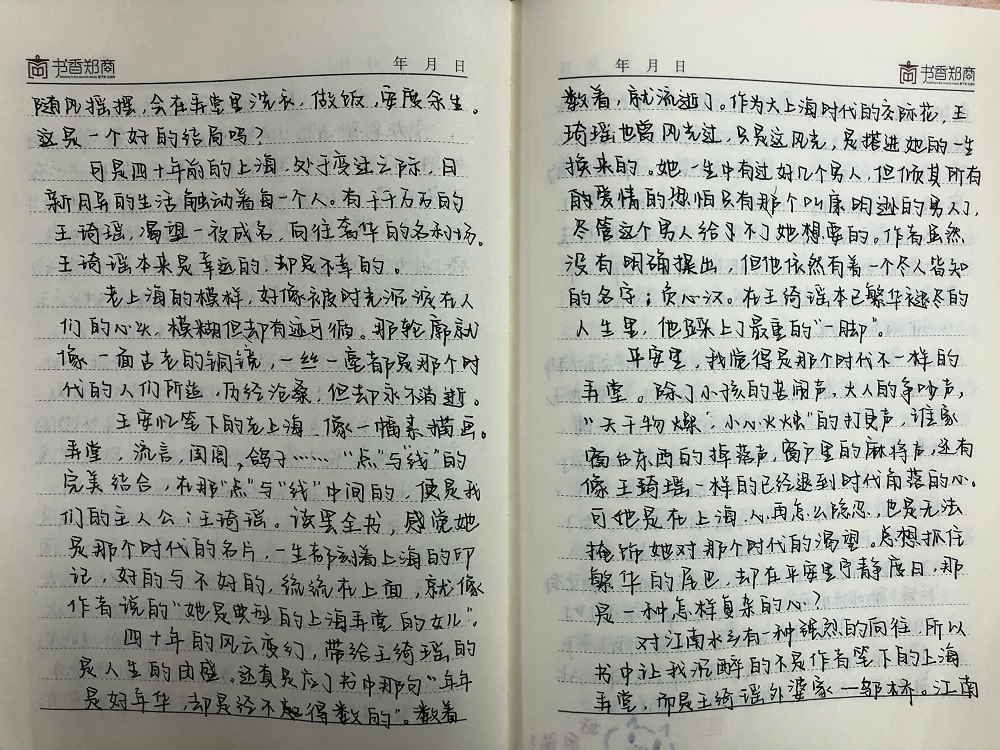 书香郑商
年 月 日
随风摇摆,会在弄堂里洗衣,做饭,安度余生。
这是一个好的结局吗?
可是四十年前的上海,处于变迁之际,日
新月异的生活触动着每一个人。有千千万万的
王琦瑶,渴望一夜成名,向往奢华的名利场。
王琦瑶本来是幸运的,却是不幸的。
老上海的模样,好像被时光沉淀在人
们的心头,模糊但却有迹可循。那轮廓就
像一面古老的铜镜,一丝一毫都是那个时
代的人们所造,历经沧桑,但却永不消逝。
王安忆笔下的老上海,像一幅素描画。
弄堂,流言,闺阁,鸽子……"点"与"线"的
完美结合,在那"点"与"线"中间的,便是我
们的主人公:王琦瑶。读罢全书,感觉她
是那个时代的名片,一生都刻着上海的印
记,好的与不好的,统统在上面,就像
作者说的"她是典型的上海弄堂的女儿"。
四十年的风云变幻,带给王绮瑶的
是人生的由盛。还真是应了书中那句"年年
是好年华,却是经不起得数的"。数着
书香郑商
年 月 日
数着,就流逝了。作为大上海时代的交际花,王
琦瑶也曾风光过,只是这风光,是搭进她的一生
换来的。她一生中有过好几个男人,但倾其所有
的爱情的恐怕只有那个叫康明逊的男人了,
尽管这个男人给予不了她想要的。作者虽然
没有明确提出,但他依然有着一个尽人皆知
的名字:负心汉。在王绮瑶本已繁华褪尽的
人生里,他踩上了最重的"一脚"。
平安里,我觉得是那个时代不一样的
弄堂。除了小孩的哭闹声,大人的争吵声,
"天干物燥,小心火烛"的打更声,谁家
窗台东西的掉落声,窗户里的麻将声,还有
像王琦瑶一样的已经退到时代角落的心。
可他是在上海,人再怎么隐忍,也是无法
掩饰她对那个时代的渴望。总想抓住
繁华的尾巴,却在平安里宁静度日,那
是一种怎样复杂的心?
对江南水乡有一种强烈的向往,所以
书中让我沉醉的不是作者笔下的上海
弄堂,而是王绮瑶外婆家——邬桥。江南